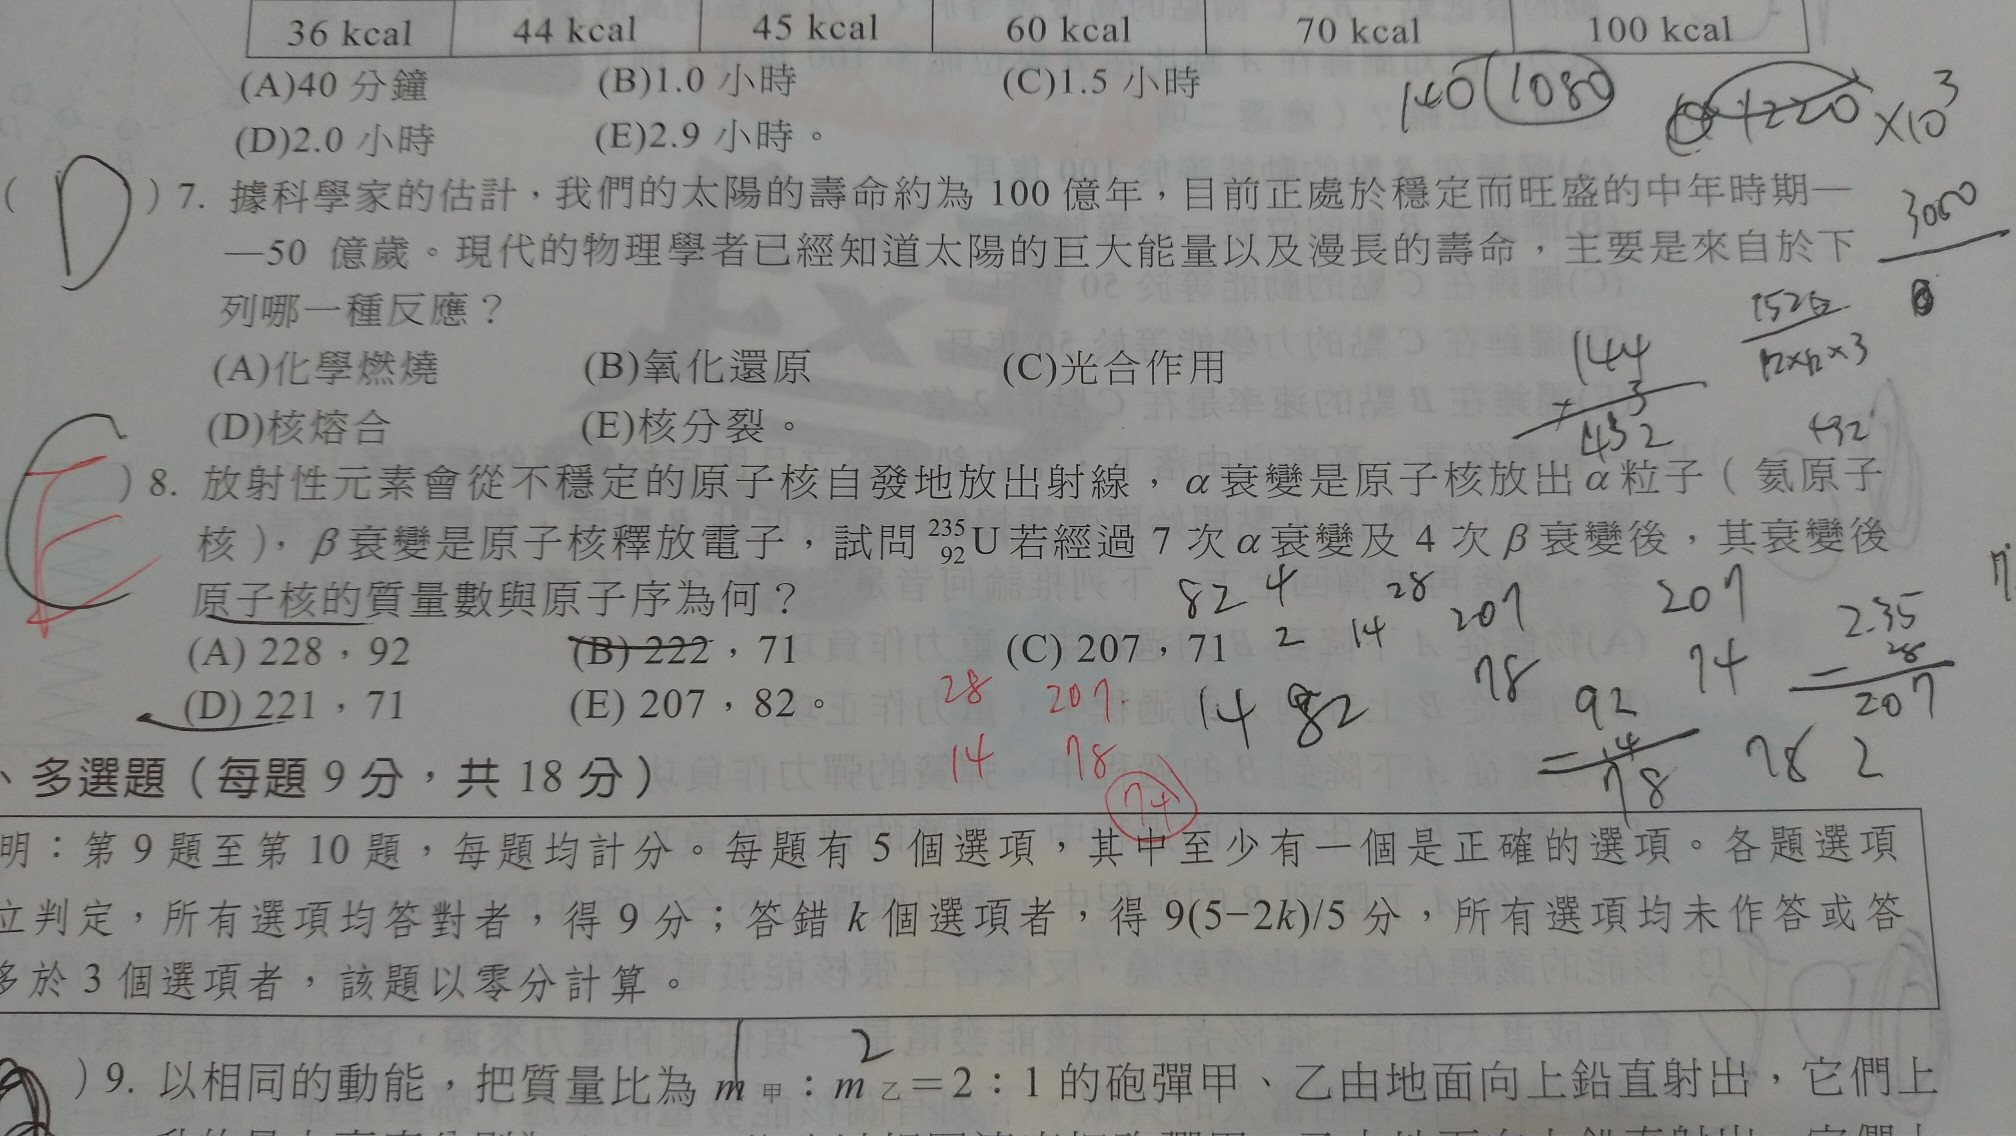 36 kcal 44 kcal 45 kcal 60 kcal 70 kcal 100 kcal
(A)40 分鐘 (B)1.0 小時 (C)1.5 小時
140 1080
1220 ×10³
(D)2.0 小時 (E)2.9 小時。
( D )7. 據科學家的估計，我們的太陽的壽命約為 100 億年，目前正處於穩定而旺盛的中年時期—
3000
—50 億歲。現代的物理學者已經知道太陽的巨大能量以及漫長的壽命，主要是來自於下
列哪一種反應？
12×12×3
144
3
432
(A)化學燃燒 (B)氧化還原 (C)光合作用
(D)核熔合 (E)核分裂。
C E )8. 放射性元素會從不穩定的原子核自發地放出射線，α衰變是原子核放出α粒子（氦原子
核），β衰變是原子核釋放電子，試問 ²³⁵₉₂U 若經過 7 次α衰變及 4 次β衰變後，其衰變後
原子核的質量數與原子序為何？
82 4 28 207 207 235
2 14 78 74 28
207
(A) 228，92 (B) 222，71 (C) 207，71
(D) 221，71 (E) 207，82。
28 207 14 82 92
14 78 14 78 2
74 78
、多選題（每題 9 分，共 18 分）
明：第 9 題至第 10 題，每題均計分。每題有 5 個選項，其中至少有一個是正確的選項。各題選項
立判定，所有選項均答對者，得 9 分；答錯 k 個選項者，得 9(5−2k)/5 分，所有選項均未作答或答
多於 3 個選項者，該題以零分計算。
1 2
)9. 以相同的動能，把質量比為 m甲：m乙＝2：1 的砲彈甲、乙由地面向上鉛直射出，它們上